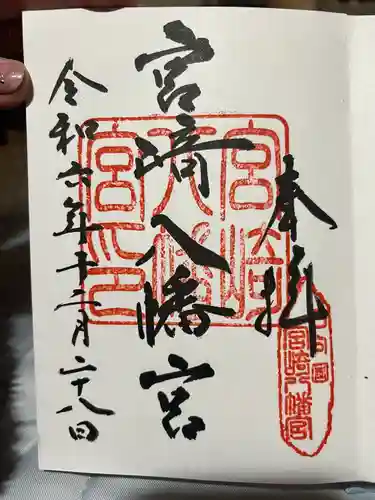 奉拝
宮崎八幡宮
令和六年十二月二十八日
宮崎八幡宮印
宮崎八幡宮